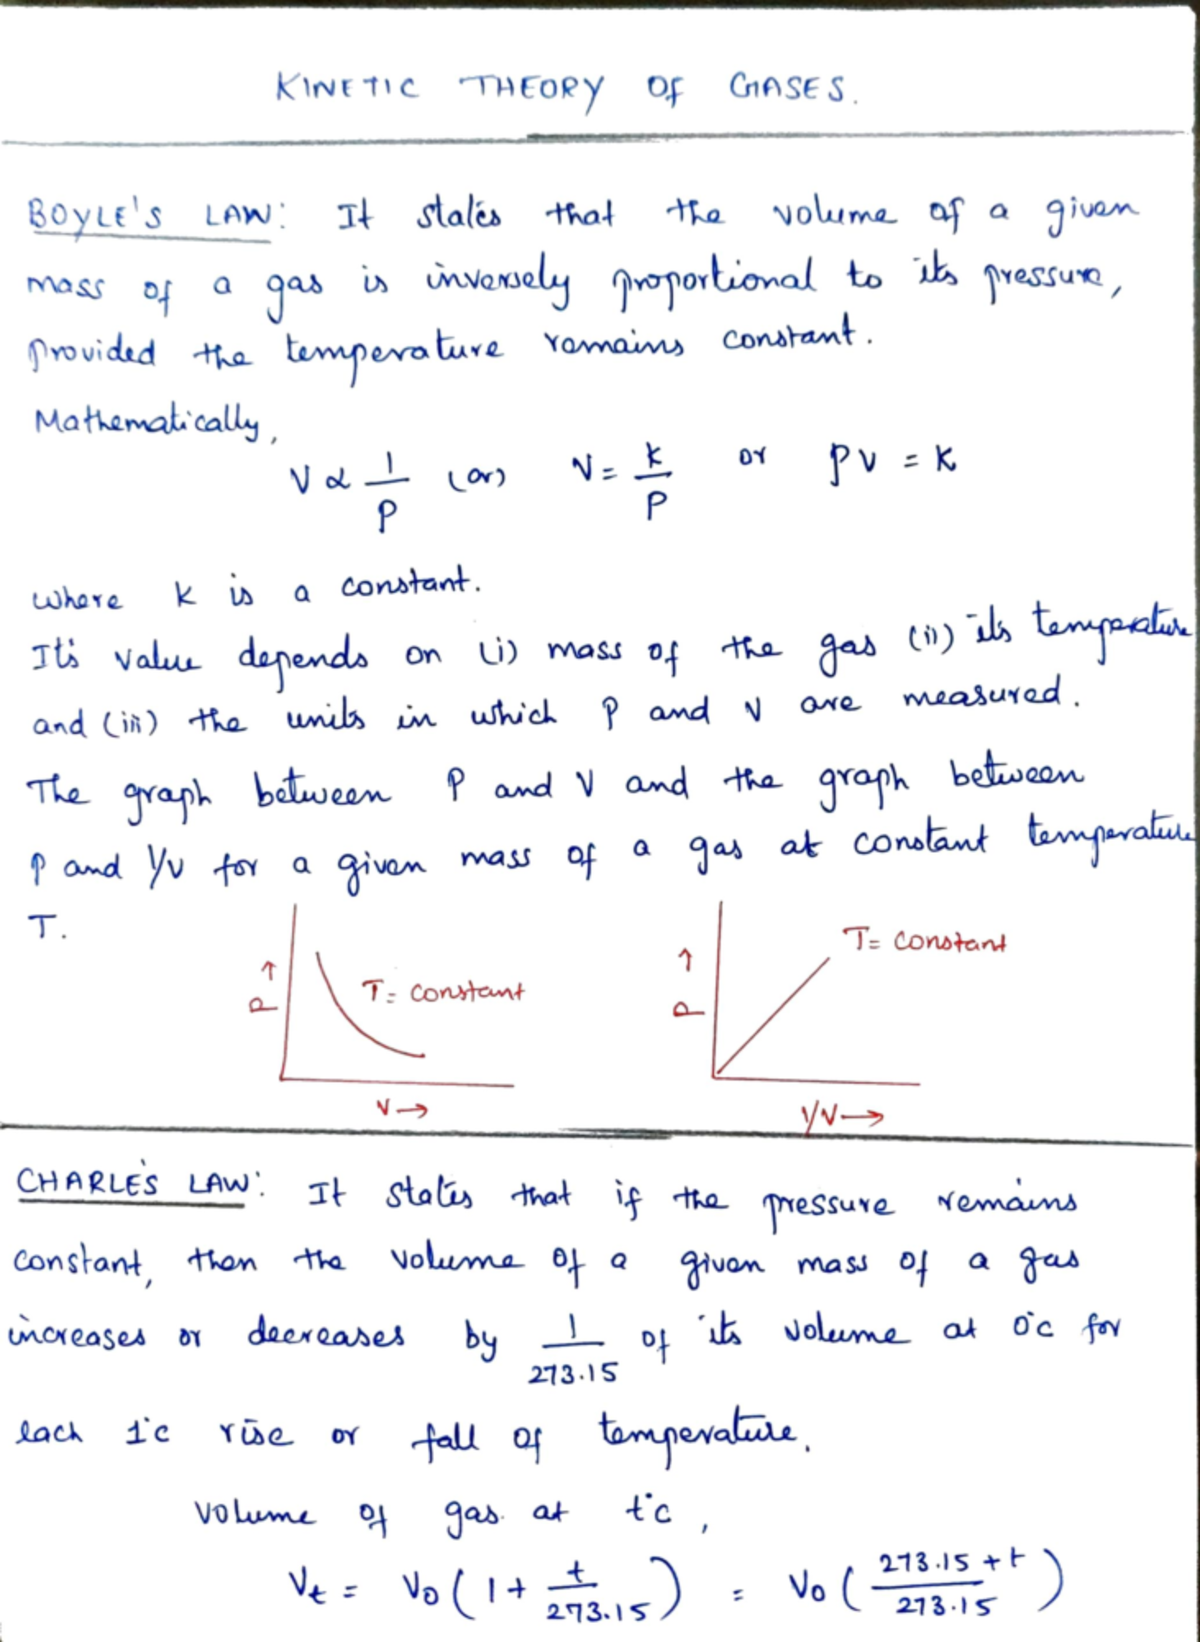 KINETIC THEORY OF GASES.
BOYLE'S LAW: It states that the volume of a given
mass of a gas is inversely proportional to its pressure,
provided the temperature remains constant.
Mathematically,
V ∝ 1/P (or) V = k/P or PV = K
where K is a constant.
It's value depends on (i) mass of the gas (ii) its temperature
and (iii) the units in which P and V are measured.
The graph between P and V and the graph between
P and 1/V for a given mass of a gas at constant temperature
T.
P → T = constant V →
P → T = constant 1/V →
CHARLE'S LAW: It states that if the pressure remains
constant, then the volume of a given mass of a gas
increases or decreases by 1/273.15 of its volume at 0°C for
each 1°C rise or fall of temperature.
volume of gas at t°C,
Vt = V0 ( 1 + t/273.15 ) = V0 ( 273.15 + t / 273.15 )